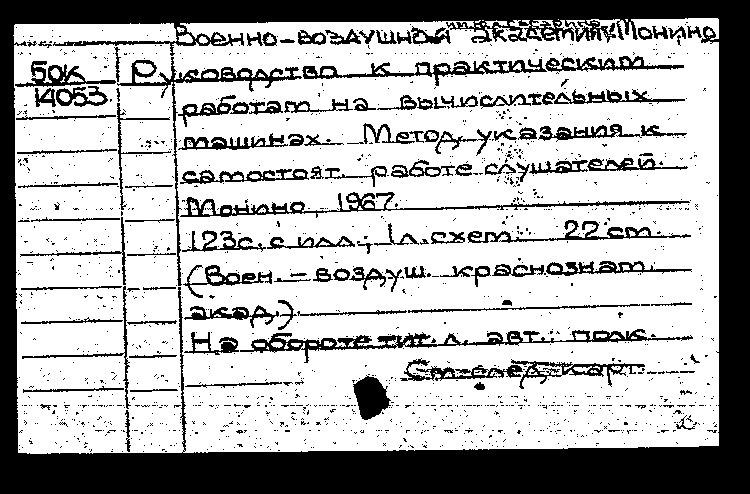 Военно-воздушная академия, Монино
50к Руководство к практическим
14053 работам на вычислительных
машинах. Метод. указания к
самостоят. работе слушателей.
Монино, 1967.
123с. с илл.; 1л. схем. 22 см.
(Воен. - воздуш. краснознам.
акад.).
На обороте тит. л. авт.: полк.
См. след. карт.